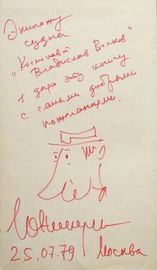 Экипажу
судна
"Космонавт
Владислав Волков"
я дарю эту книгу
с самыми добрыми
пожеланиями.
25.07.79 Москва